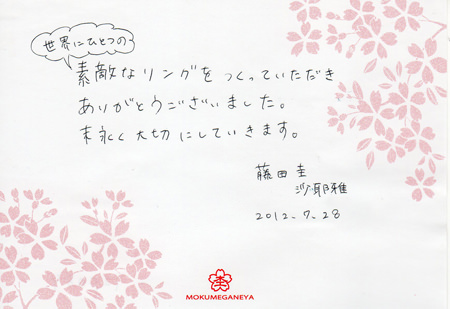 世界にひとつの
素敵なリングをつくっていただき
ありがとうございました。
末永く大切にしていきます。
藤田圭
沙耶雅
2012.7.28
杢
MOKUMEGANEYA